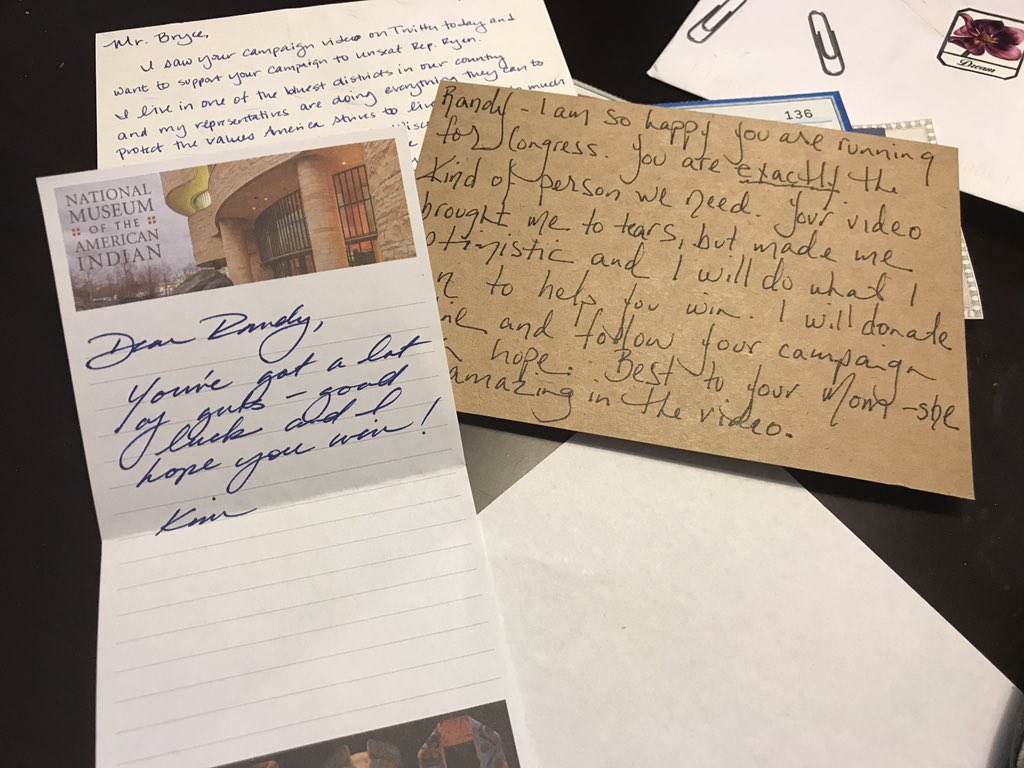 Mr. Bryce,
I saw your campaign video on Twitter today and
want to support your campaign to unseat Rep. Ryan.
I live in one of the bluest districts in our country
and my representatives are doing everything they can to
protect the values America strives to
much
136
Dream
Randy - I am so happy you are running
for Congress. You are exactly the
kind of person we need. Your video
brought me to tears, but made me
and I will do what I
to help you win. I will donate
and follow your campaign
hope. Best to your Mom - she
amazing in the video.
NATIONAL
MUSEUM
OF THE
AMERICAN
INDIAN
Dear Randy,
You've got a lot
of guts - good
luck and I
hope you win!
Kim